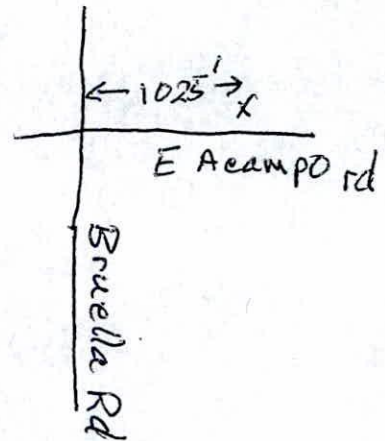 ← 1025' → x
E Acampo rd
Bruella Rd